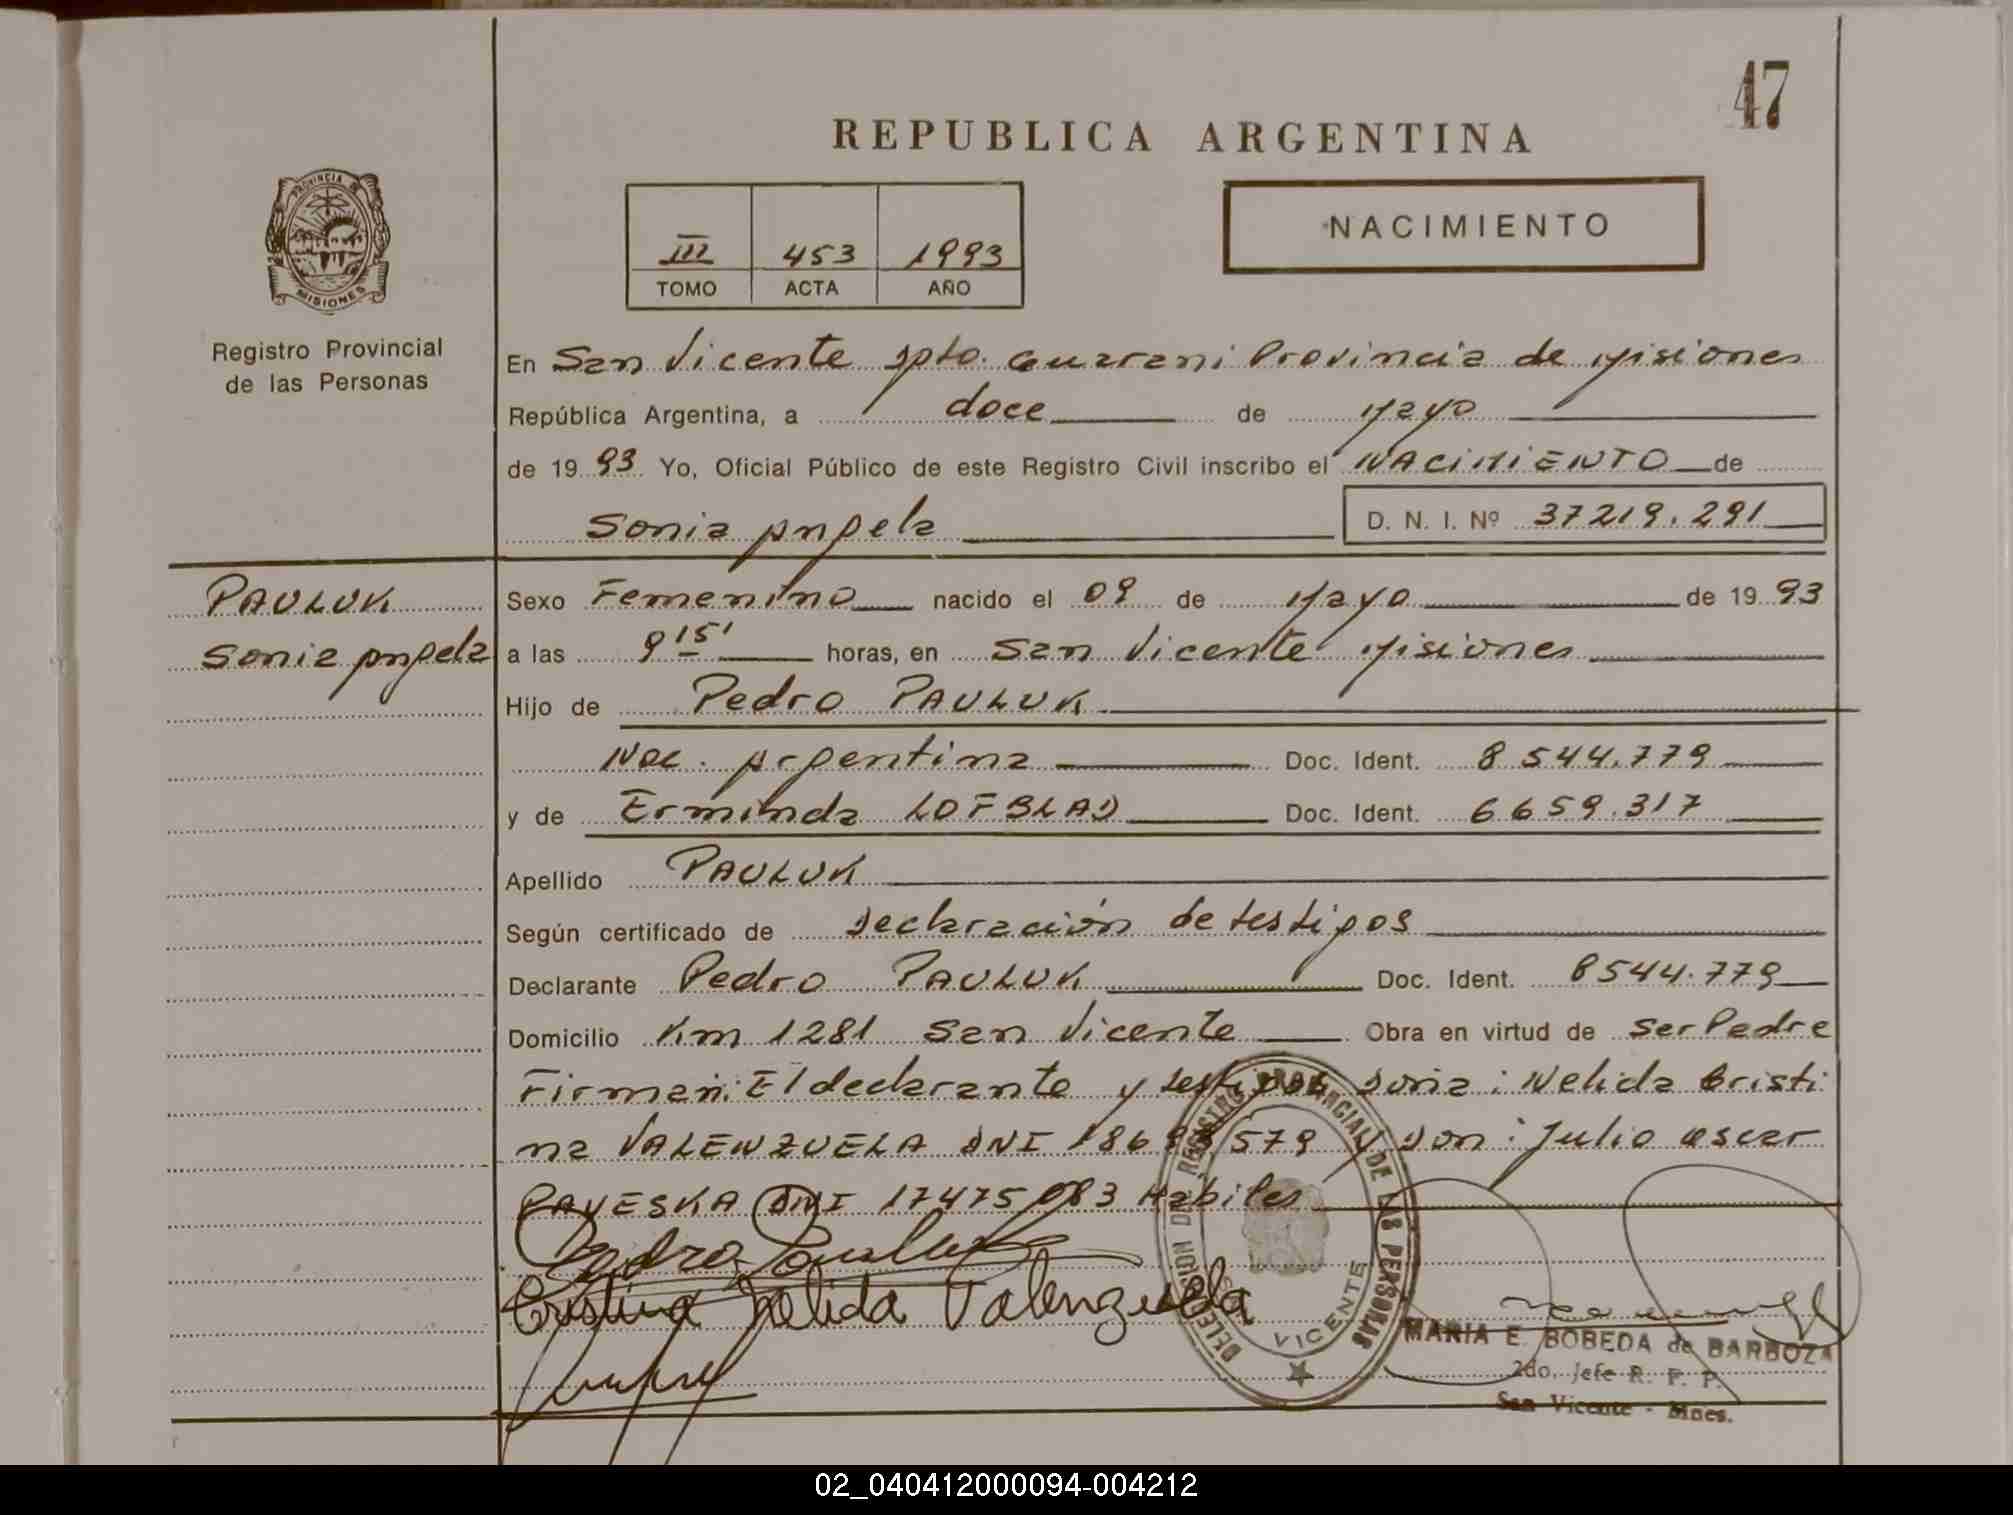 47
REPUBLICA ARGENTINA
PROVINCIA DE
MISIONES
Registro Provincial
de las Personas
III 453 1993
TOMO ACTA AÑO
NACIMIENTO
En San Vicente Dpto. Guarani Provincia de Misiones
República Argentina, a doce de Mayo
de 19 93 Yo, Oficial Público de este Registro Civil inscribo el NACIMIENTO de
Sonia Angela D. N. I. Nº 37219.291
PAULUK
Sonia Angela
Sexo Femenino nacido el 09 de Mayo de 19 93
a las 9 15' horas, en San Vicente Misiones
Hijo de Pedro PAULUK
Nac. Argentina Doc. Ident. 8544.779
y de Erminda LOFBLAD Doc. Ident. 6659.317
Apellido PAULUK
Según certificado de Declaración de testigos
Declarante Pedro PAULUK Doc. Ident. 8544.779
Domicilio Km 1281 San Vicente Obra en virtud de Ser Padre
Firman: El declarante y testigos Doña: Nelida Cristi
na VALENZUELA DNI 579 y Don: Julio Oscar
PAVESKA DNI 17475083 Habiles
Pedro Pauluk
Cristina Nelida Valenzuela
DELEGACION DEL REGISTRO PROVINCIAL DE LAS PERSONAS
VICENTE
MARIA E. BOBEDA de BARBOZA
2do. Jefe R. P. P.
San Vicente - Mnes.
02_040412000094-004212